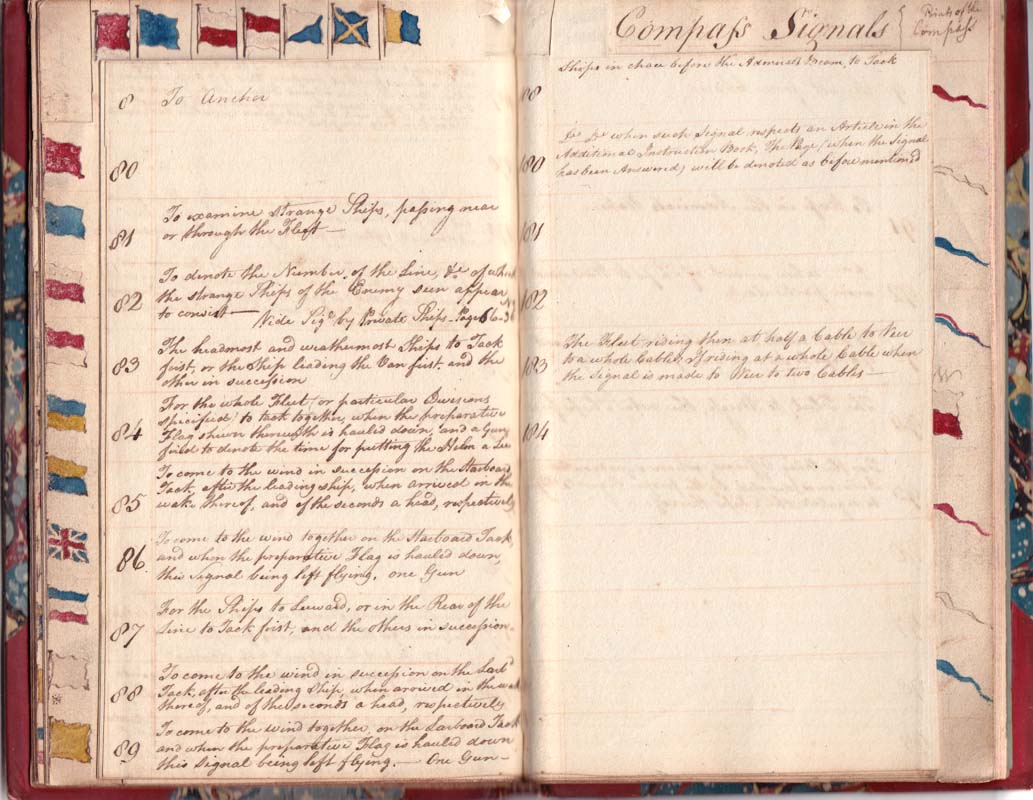 8 To Anchor
80
To examine strange Ships, passing near
81 or through the Fleet —
To denote the Number, of the Line, &c of which
82 the strange Ships of the Enemy seen appear
to consist — Vide Sigs by Private Ships - Page
The headmost and weathermost Ships to Tack
83 first, or the Ship leading the Van first, and the
other in succession
For the whole Fleet (or particular Divisions
specified) to tack together, when the preparative
84 Flag shewn therewith is hauled down, and a Gun
fired to denote the time for putting the Helm a Lee
To come to the wind in succession on the Starboard
Tack, after the leading ship, when arrived in the
85 wake thereof, and of the seconds a head, respectively
To come to the wind together on the Starboard Tack,
86 and when the preparative Flag is hauled down,
this Signal being left flying. one Gun
For the Ships to Leeward, or in the Rear of the
87 Line to Tack first, and the others in succession.
To come to the wind in succession on the Larbd
88 Tack, after the leading Ship, when arrived in the wake
thereof, and of the seconds a head, respectively
To come to the wind together, on the Larboard Tack
89 and when the preparative Flag is hauled down
this Signal being left flying. — One Gun —
Compass Signals { Points of the
Compass
Ships in chace before the Admiral's Beam, to Tack
Do Do when such Signal respects an Article in the
180 Additional Instruction Book, The Page (when the Signal
has been Answered) will be denoted as before mentioned
181
182
The Fleet riding then at half a Cable to Veer
183 to a whole Cable; or if riding at a whole Cable when
the Signal is made to Veer to two Cables —
184